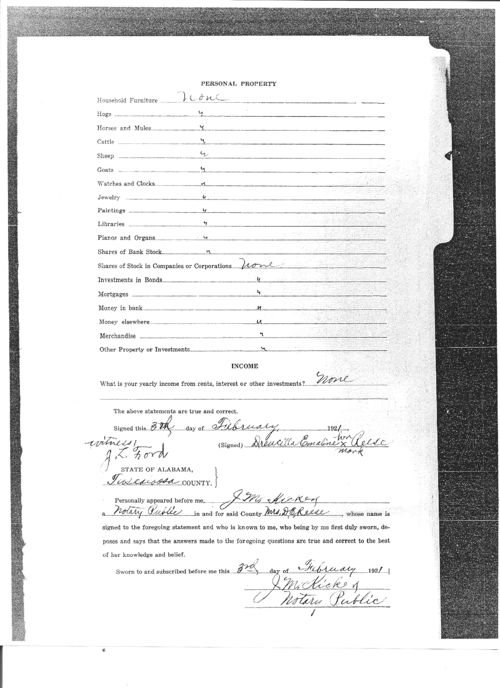 PERSONAL PROPERTY
Household Furniture None
Hogs "
Horses and Mules "
Cattle "
Sheep "
Goats "
Watches and Clocks "
Jewelry "
Paintings "
Libraries "
Pianos and Organs "
Shares of Bank Stock "
Shares of Stock in Companies or Corporations None
Investments in Bonds "
Mortgages "
Money in bank "
Money elsewhere "
Merchandise "
Other Property or Investments "
INCOME
What is your yearly income from rents, interest or other investments? None
The above statements are true and correct.
Signed this 3rd day of February, 1921
witness: (Signed) Drucilla Emaline X Reese
her
mark
J. L. Ford
STATE OF ALABAMA,
Tuscaloosa COUNTY.
Personally appeared before me, J. Mc
a Notary Public in and for said County Mrs. D. E. Reese, whose name is
signed to the foregoing statement and who is known to me, who being by me first duly sworn, de-
poses and says that the answers made to the foregoing questions are true and correct to the best
of her knowledge and belief.
Sworn to and subscribed before me this 3rd day of February 1921
J. Mc
Notary Public